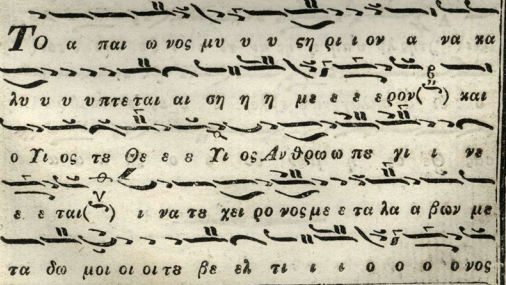 Το α παι ω νος μυ υ υ ςη ρι ι ον α να κα
λυ υ υ υ πτε ται αι ση η η με ε ε ε ρον( ) και
ο Υι ος τȣ Θε ε ε Υι ος Αν θρω ω πε γι ι νε
ε ε ται( ) ι να τȣ χει ρο νος με ε τα λα α βων με
τα δω μοι οι οι τȣ βε ελ τι ι ι ι ο ο ο ο νος